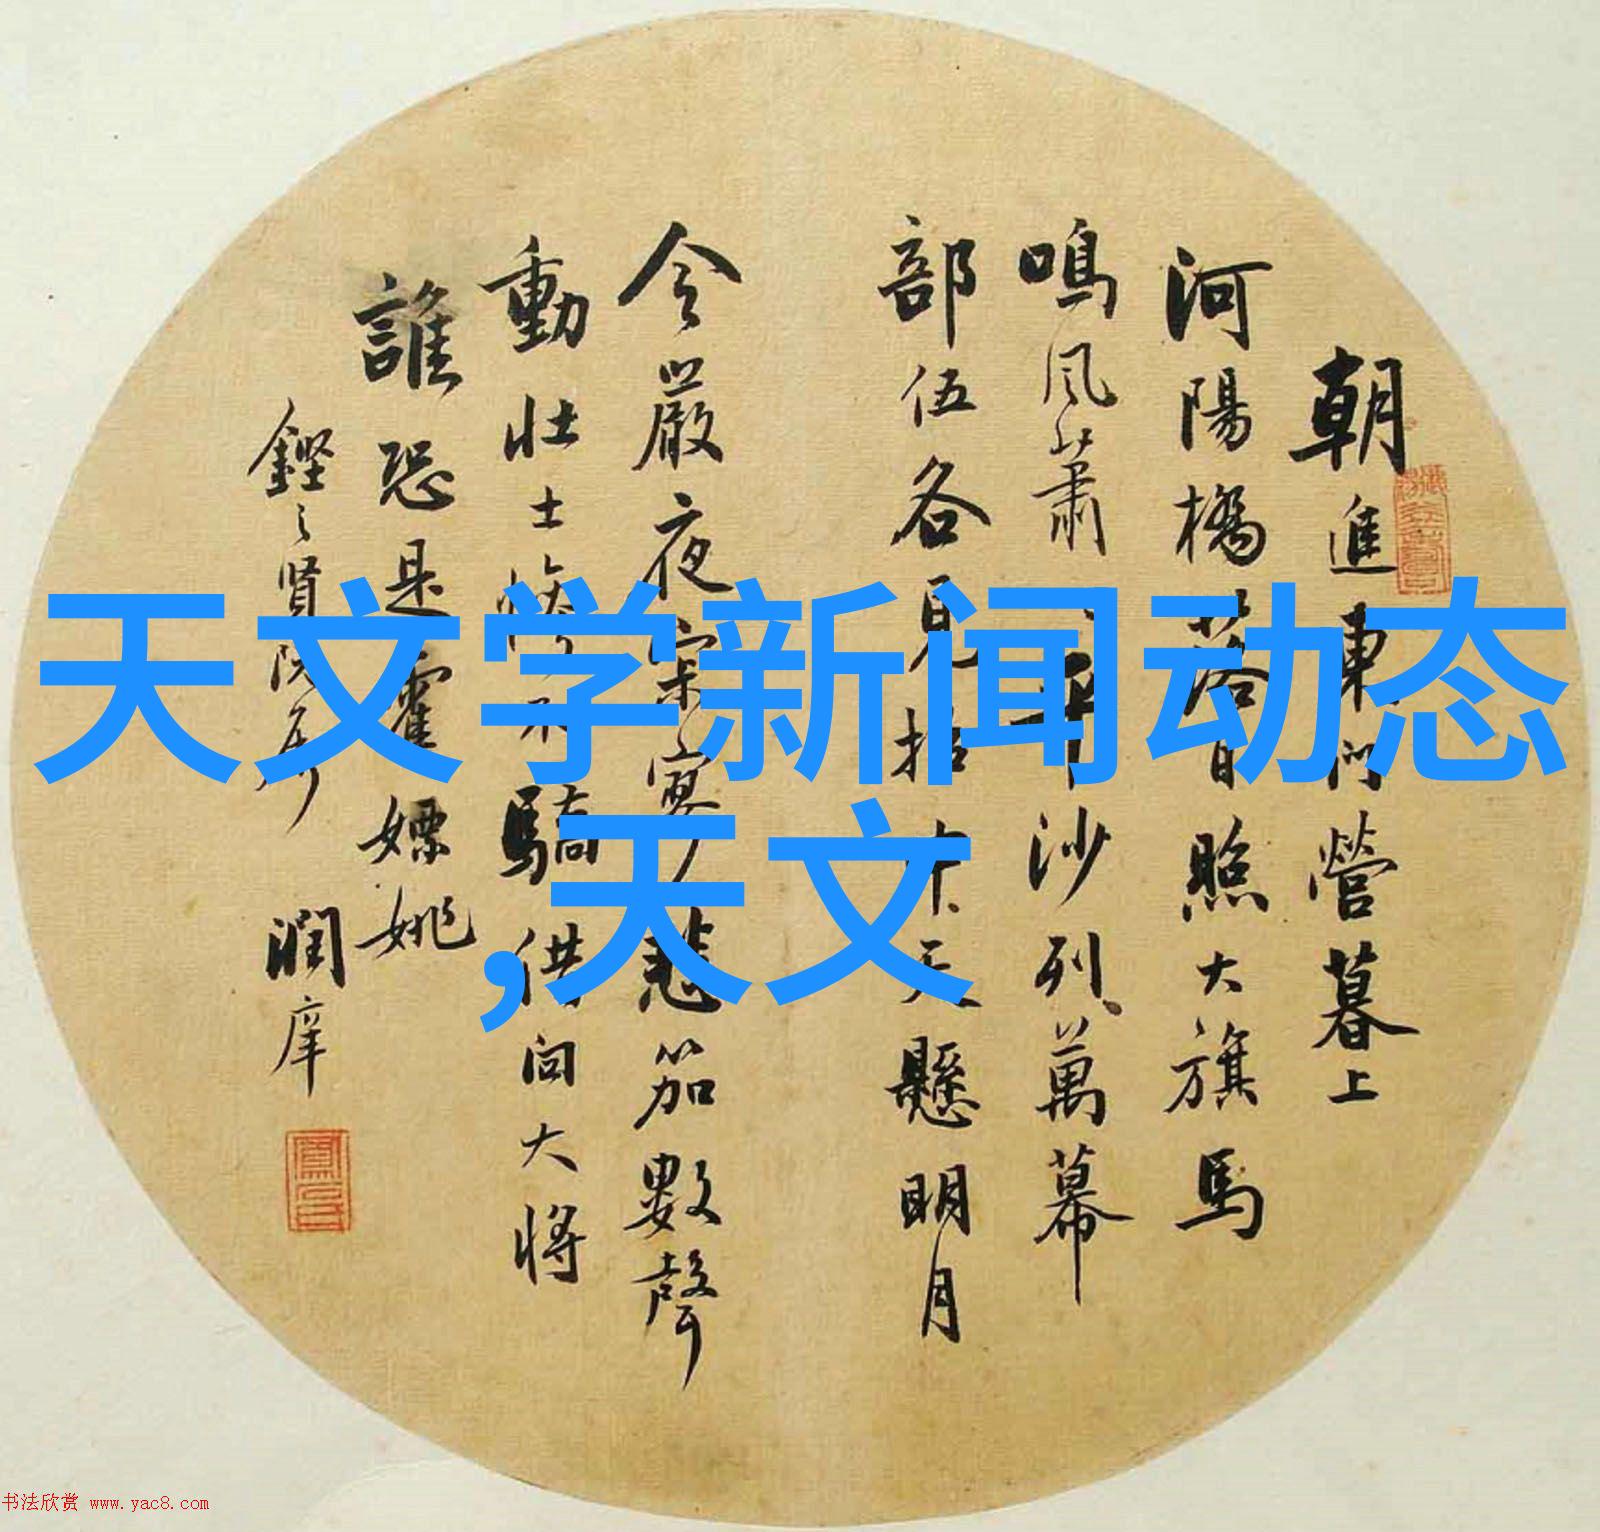 天文学新闻动态
,天文
朝進東門營暮上
河陽橋落日照大旗馬
鳴風蕭平沙列萬幕
部伍各見招中天懸明月
令嚴夜寂寥悲笳數聲
動壯士慘不驕借問大將
誰恐是霍嫖姚
賢阮屬
潤庠
书法欣赏 www.yac8.com